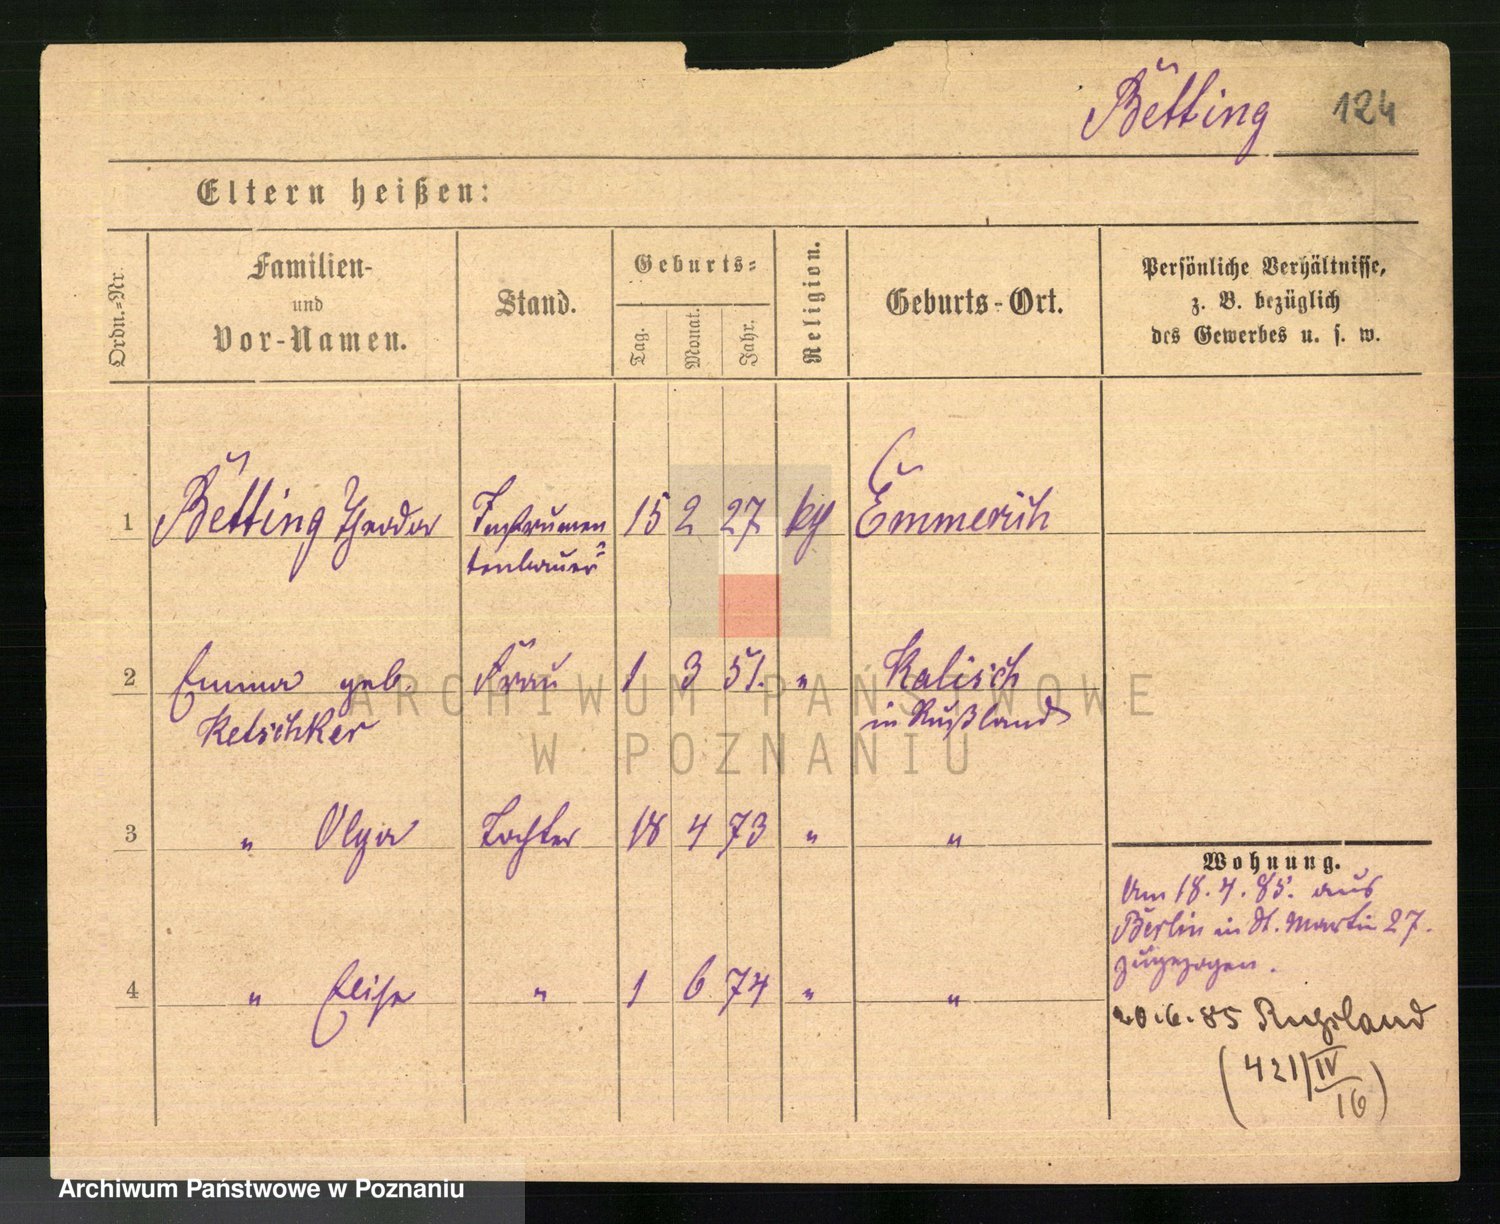 Betting 124
Eltern heißen:
Ordn.-Nr.
Familien-
und
Vor-Namen.
Stand.
Geburts-
Tag.
Monat.
Jahr.
Religion.
Geburts-Ort.
Persönliche Verhältnisse,
z. B. bezüglich
des Gewerbes u. s. w.
1 Betting Theodor Instrumen 15 2 27 Emmerich
tenbauer
2 Emma geb. Frau 1 3 51. " Kalisch
Ketschker in Rußland
3 " Olga Tochter 18 4 73 " "
4 " Elise " 1 6 74 " "
Wohnung.
Am 18.4.85. aus
Berlin in St. Martin 27.
zugezogen.
20.6.85 Russland
(421/IV
16)
ARCHIWUM PAŃSTWOWE
W POZNANIU
Archiwum Państwowe w Poznaniu